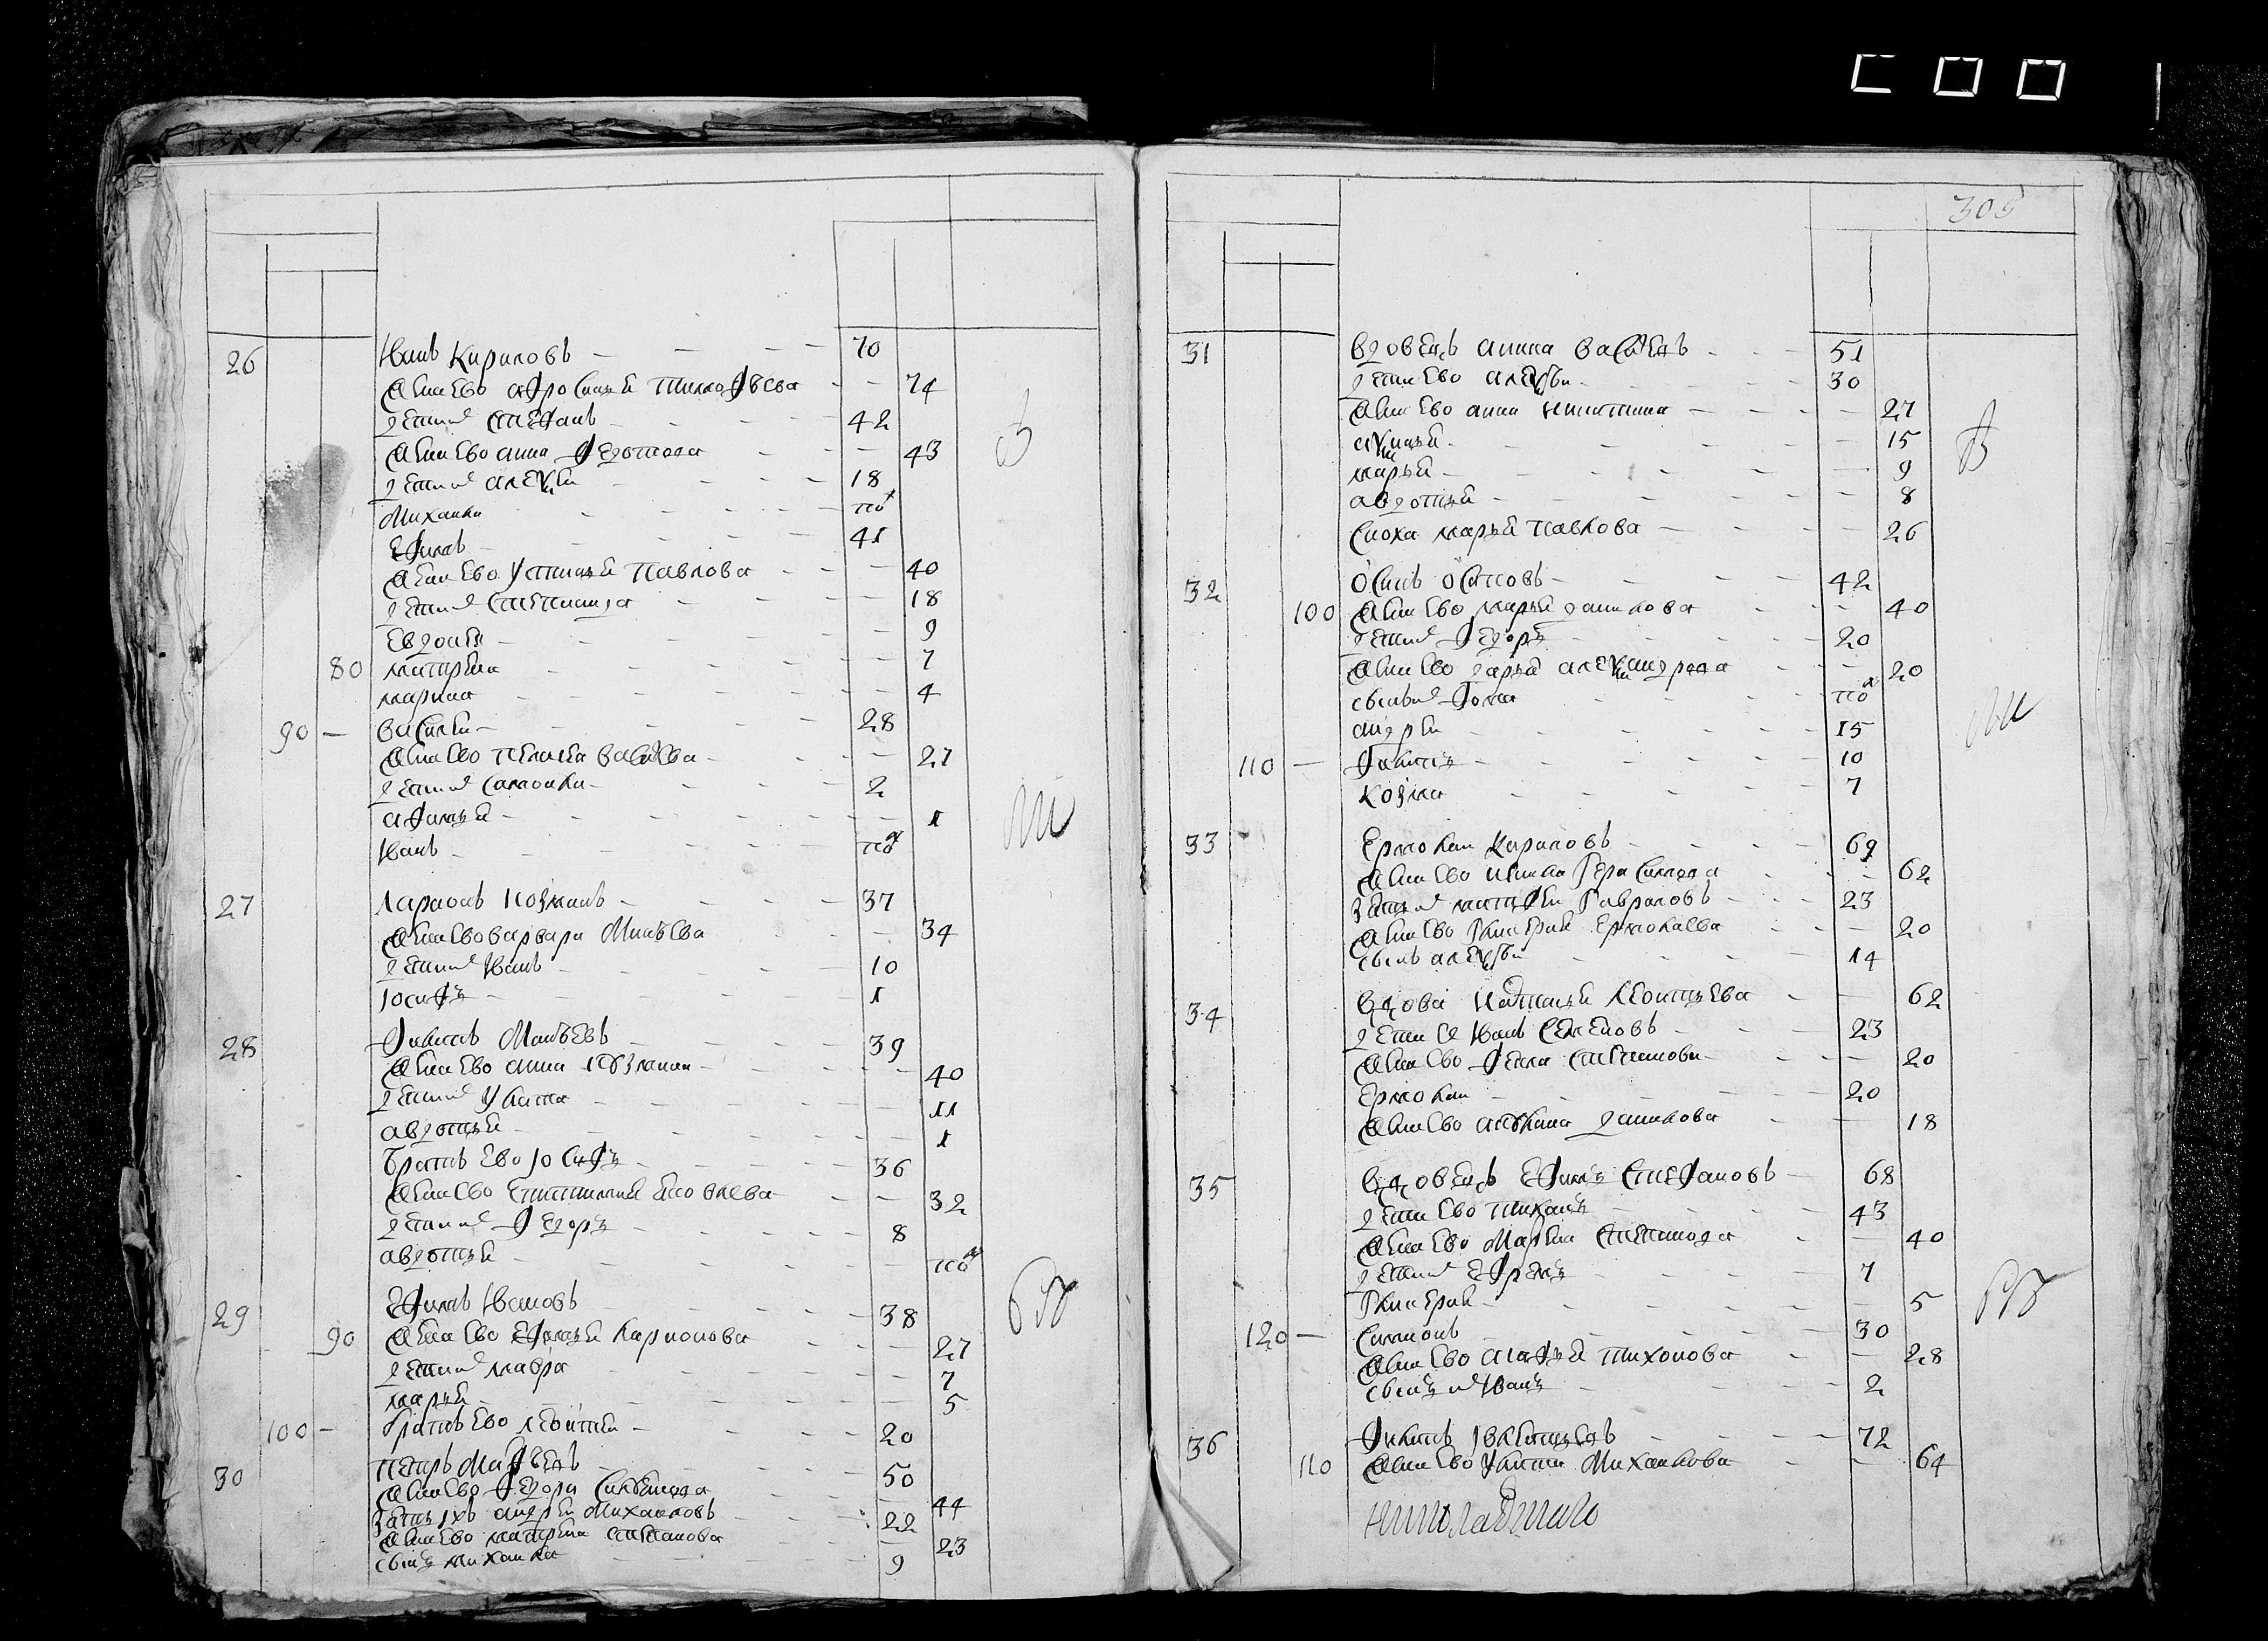 305
26 Иванъ Кириловъ 70
жена ево афросинья тимофѣева 74
дети и͏̈хъ стефанъ 42
жена ево анна федотова 43
дети ихъ алексѣи 18
Михаила по
ефимъ 41
жена ево устинья павлова 40
дети ихъ степанида 18
евдокѣя 9
80 матрена 7
марина 4
90 — василеи 28
жена ево пелагея васильева 27
дети ихъ самоила 2
афимья 1
Иванъ по
27 Ларионъ козминъ 37
жена ево варвара Минѣева 34
дети ихъ Иванъ 10
Iосифъ 1
28 филипъ Минѣевъ 39
жена ево анна козмина 40
дети ихъ улита 11
авдотья 1
братъ ево Iосифъ 36
жена ево епистимия яковлева 32
дети ихъ федоръ 8
авдотья по
29 ефимъ Ивановъ 38
90 жена ево ефимья ларионова 27
дети ихъ мавра 7
марья 5
100 — братъ ево леонтеи 20
30 петръ Матфѣевъ 50
жена ево федора 44
зять ихъ андреи Михаиловъ 22
жена ево матрена степанова 23
сынъ михаила 9
31 вдовецъ аника васильевъ 51
дети ево алексѣи 30
жена ево анна никитина 27
аксинья 15
марья 9
авдотья 8
сноха марья павлова 26
32 осипъ осиповъ 42
100 жена ево марья данилова 40
дети ихъ федоръ 20
жена ево дарья александрова 20
сынъ ихъ фома по
андреи 15
110 — филипъ 10
козма 7
33 Ермолаи Кириловъ 69
жена ево ирина герасимова 62
зять ихъ матфеи гавриловъ 23
жена ево гликерия ермолаева 20
сынъ алексѣи 14
34 вдова наталья леонтьева 62
дети ее Иванъ семеновъ 23
жена ево фекла степанова 20
ермолаи 20
жена ево данилова 18
35 вдовецъ ефимъ стефановъ 68
дети ево тихонъ 43
жена ево Марѳа степанова 40
дети ихъ ефремъ 7
гликерия 5
120 — симионъ 30
жена ево агафья тихонова 28
сынъ ихъ Иванъ 2
36 филипъ 72
110 жена ево улита Михаилова 64